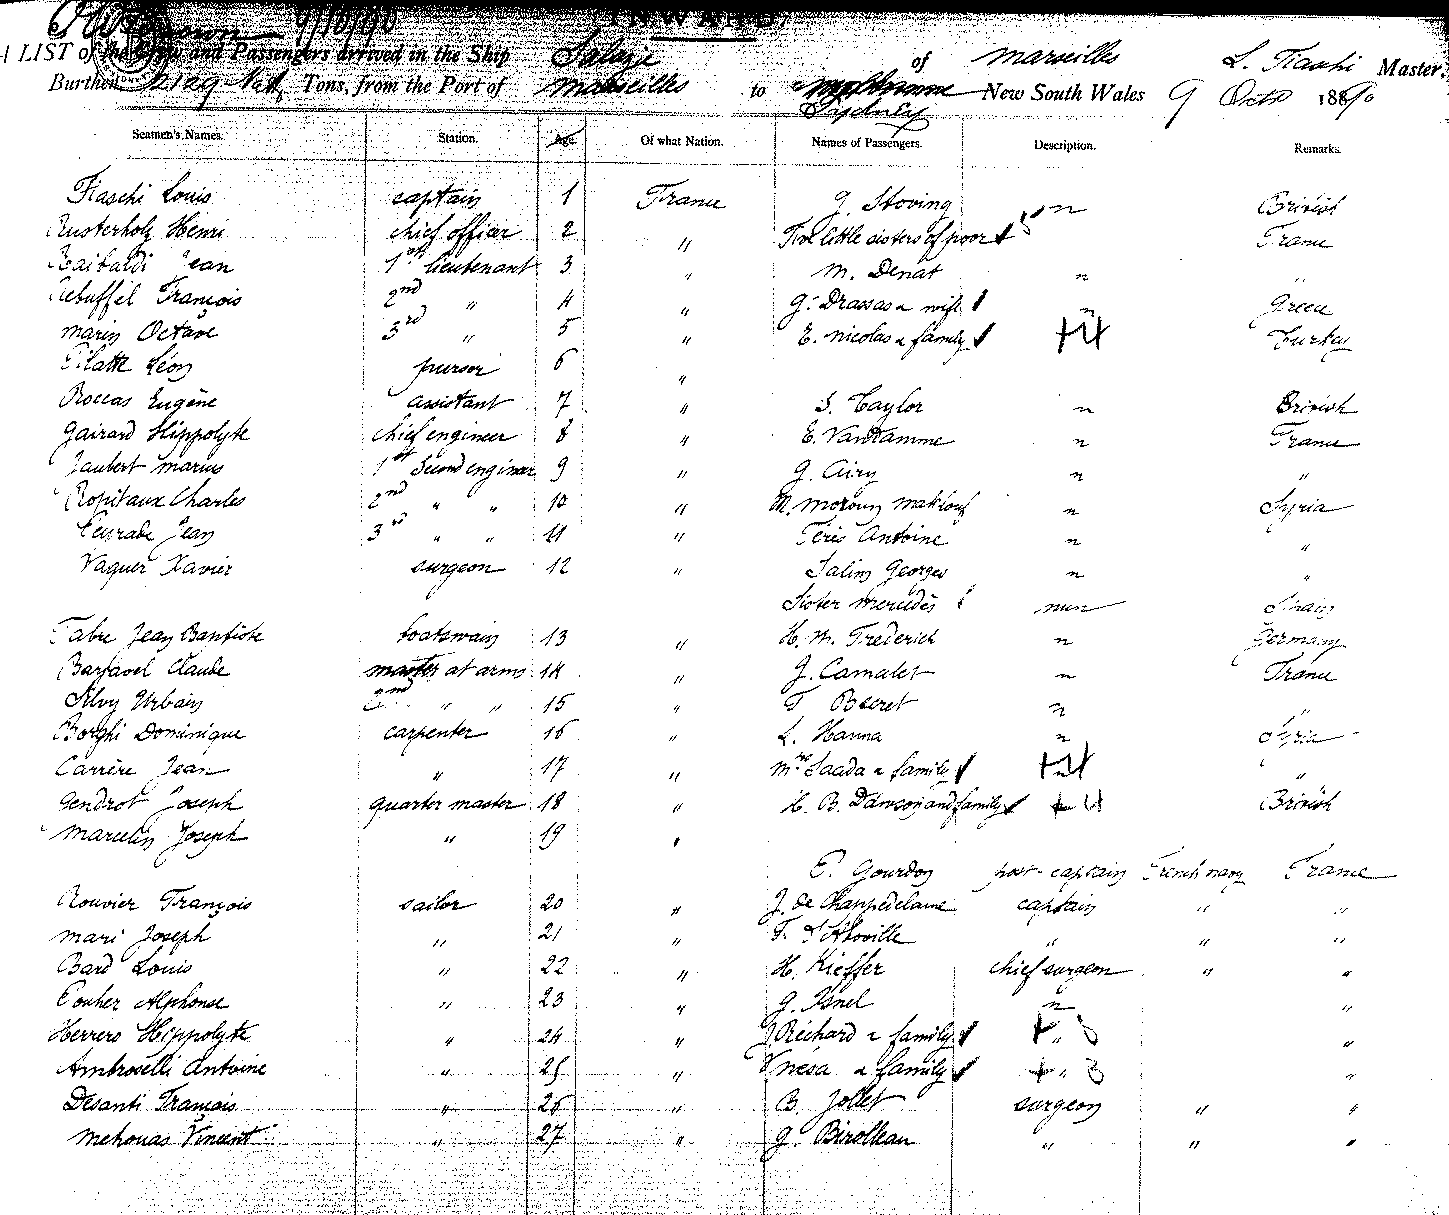 9/10/90 INWARD.
A LIST of the Crew and Passengers arrived in the Ship Salazie of Marseilles L. Fiaschi Master,
Burthen Tons, from the Port of Marseilles to Melbourne New South Wales 9 Octo 1890
Sydney
Seamen's Names. Station. Age. Of what Nation. Names of Passengers. Description. Remarks.
Fiaschi Louis captain 1 France G. Stoving " British
Rusterholz Henri chief officer 2 " Five little sisters of poor 5 France
Raibaldi Jean 1st lieutenant 3 " M. Denat " "
Rebuffel François 2nd " 4 " G. Drassas & wife " Greece
Marin Octave 3rd " 5 " E. Nicolas & family 4 Turkey
Pilatte Léon pursor 6 "
Roccas Eugène assistant 7 " S. Taylor " British
Gairard Hippolyte chief engineer 8 " E. Vandamme " France
Jaubert Marius 1st second engineer 9 " G. Airy " "
Ropitaux Charles 2nd " " 10 " M. Moroun Makhouf " Syria
Jean 3rd " " 11 " Antoine " "
Vaguer Xavier surgeon 12 " Salim Georges " "
Sister Mercédès nun Spain
Fabre Jean Baptiste boatswain 13 " H. M. Frederich " Germany
Barjavel Claude master at arms 14 " G. Camalet " France
Silvy Urbain 2nd " " 15 " F. " "
Borghi Dominique carpenter 16 " L. Hanna " Syria
Carrère Jean " 17 " Mrs Saada & family "
Gendrot Joseph quarter master 18 " H. B. Danson and family 4 British
Marcelin Joseph " 19 "
E. Gourdon post-captain French navy France
Rouvier François sailor 20 " J. de Chappedelaine captain " "
Mari Joseph " 21 " F. d'Aboville " " "
Bard Louis " 22 " H. Kieffer chief surgeon " "
Alphonse " 23 " G. Isnel " "
Herrero Hippolyte " 24 " J Réchard & family " "
Ambroselli Antoine " 25 " & family " 3 "
Desanti François " 26 " B. Jollet surgeon " "
Mehouas Vincent " 27 " G. Birolleau " " "